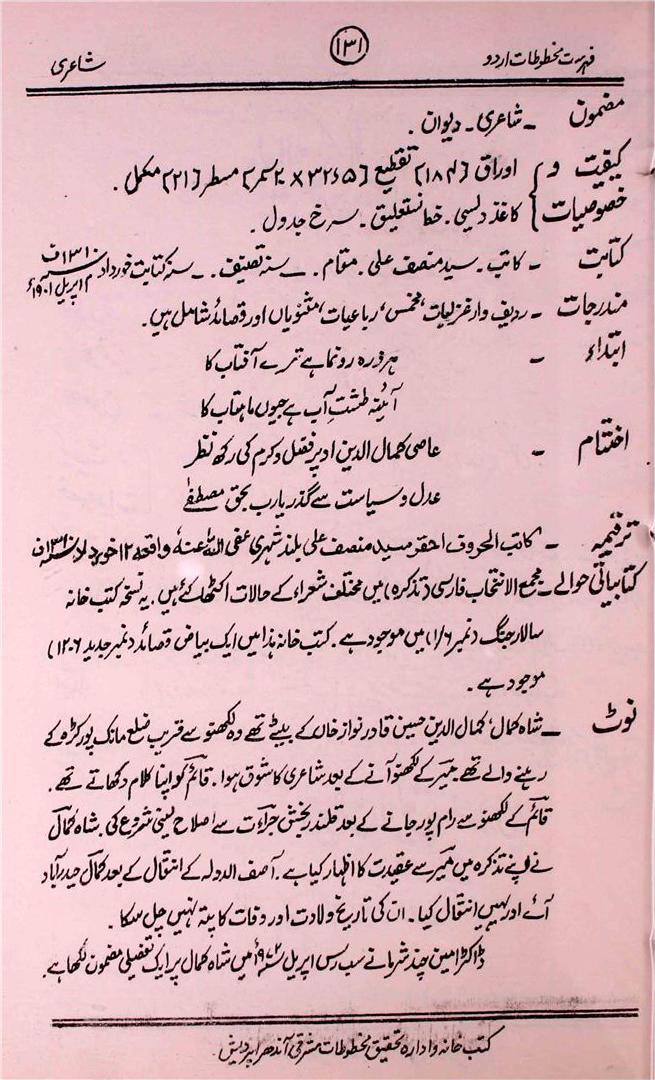 فہرست مخطوطات اردو ۱۳۱ شاعری
مضمون - شاعری۔ دیوان۔
کیفیت و } اوراق [۱۸۴] تقطیع [۳۲٫۵ × ۲۰ سمر] مسطر [۲۱] مکمل۔
خصوصیات } کاغذ دیسی۔ خط نستعلیق۔ سرخ جدول۔
کتابت - کاتب۔ سید منصف علی۔ مقام۔ ـــ سنہ تصنیف۔ ـــ سنہ کتابت خورداد ۱۳۱۰ف م اپریل ۱۹۰۱ء
مندرجات - ردیف وار غزلیات، مخمس، رباعیات، مثنویاں اور قصائد شامل ہیں۔
ابتداء - ہر ذرہ رونما ہے ترے آفتاب کا
آئینہ طشتِ آب ہے جیوں ماہتاب کا
اختتام - عاصی کمال الدین اوپر فضل و کرم کی رکھ نظر
عدل و سیاست سے گذر یارب بحق مصطفےٰ
ترقیمہ - "کاتب الحروف احقر سید منصف علی بلند شہری عفی اللہ عنہ واقعہ ۱۲ خورداد ۱۳۱۰ف
کتابیاتی حوالے - مجمع الانتخاب فارسی (تذکرہ) میں مختلف شعراء کے حالات اکٹھا کئے ہیں۔ یہ نسخہ کتب خانہ
سالار جنگ (نمبر ۱/۶) میں موجود ہے۔ کتب خانہ ہذا میں ایک بیاض قصائد (نمبر جدید ۱۲۰۶)
موجود ہے۔
نوٹ - شاہ کمال، کمال الدین حسین قادر نواز خاں کے بیٹے تھے وہ لکھنو سے قریب ضلع مانک پور کڑہ کے
رہنے والے تھے۔ میر کے لکھنو آنے کے بعد شاعری کا شوق ہوا۔ قائم کو اپنا کلام دکھاتے تھے۔
قائم کے لکھنو سے رام پور جانے کے بعد قلندر بخش جرأت سے اصلاح لینی شروع کی۔ شاہ کمال
نے اپنے تذکرہ میں میر سے عقیدت کا اظہار کیا ہے۔ آصف الدولہ کے انتقال کے بعد کمال حیدرآباد
آئے اور یہیں انتقال کیا۔ ان کی تاریخ ولادت اور وفات کا پتہ نہیں چل سکا۔
ڈاکٹر امین چند شرما نے سب رس اپریل ۱۹۷۲ء میں شاہ کمال پر ایک تفصیلی مضمون لکھا ہے۔
کتب خانہ و ادارہ تحقیق مخطوطات مشرقی آندھرا پردیش۔